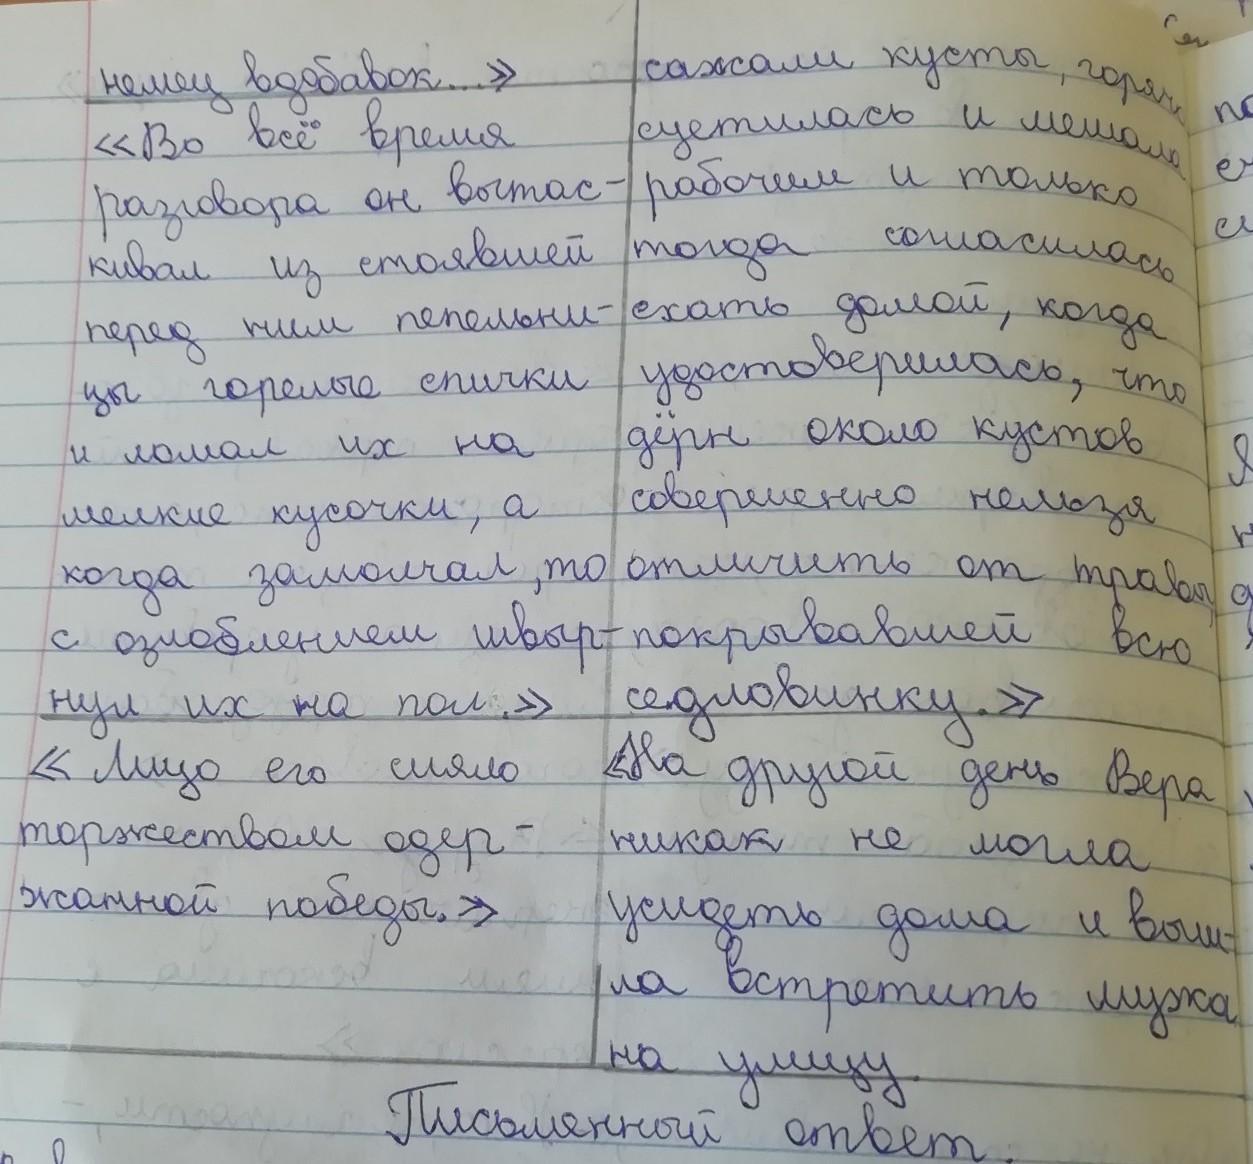 немец вдобавок...»
«Во всё время
разговора он вытас-
кивал из стоявшей
перед ним пепельни-
цы горелые спички
и ломал их на
мелкие кусочки, а
когда замолчал, то
с озлоблением швыр-
нул их на пол.»
«Лицо его сияло
торжеством одер-
жанной победы.»
сажали кусты,
суетилась и мешала
рабочим и только
тогда согласилась
ехать домой, когда
удостоверилась, что
дёрн около кустов
совершенно нельзя
отличить от травы
покрывавшей всю
седловинку.»
«На другой день Вера
никак не могла
усидеть дома и выш-
ла встретить мужа
на улицу.
Письменный ответ.